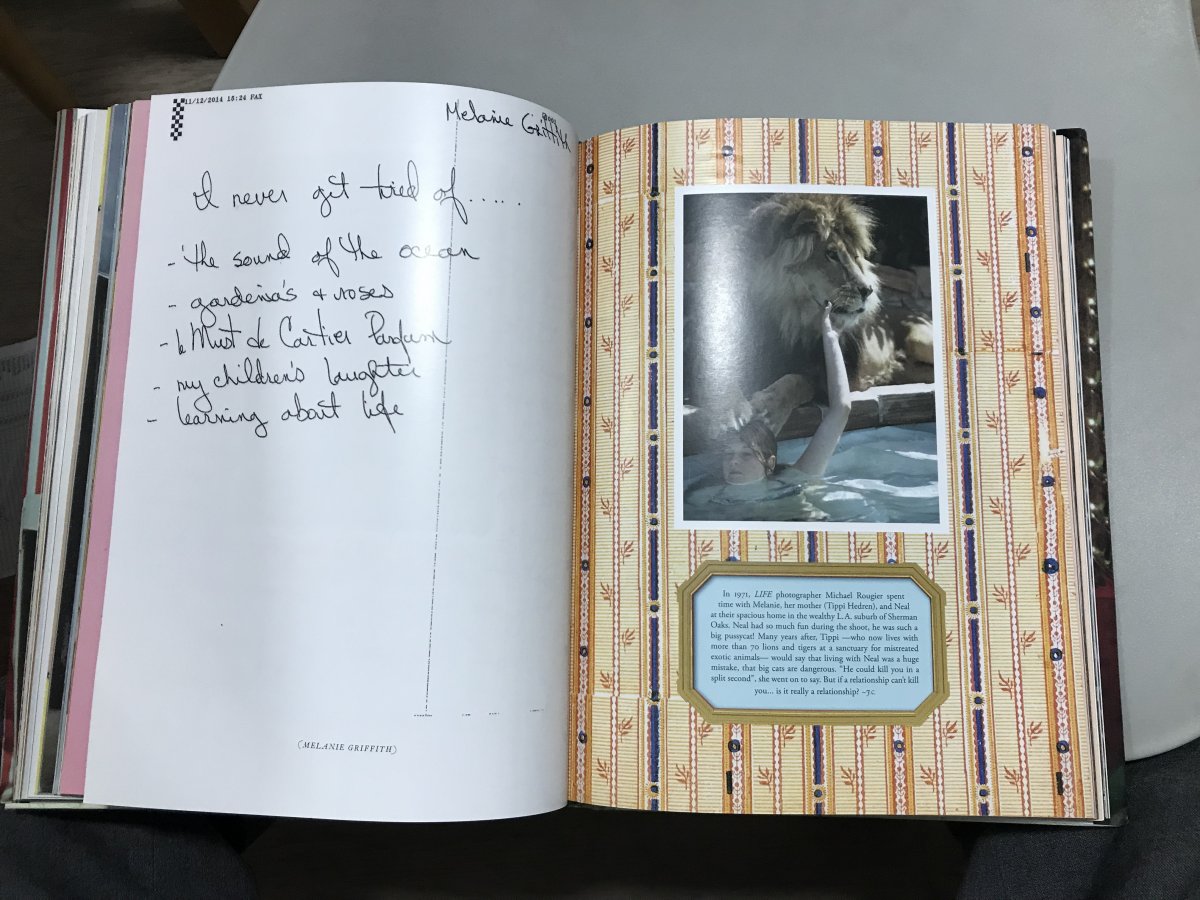 11/12/2014 15:24 FAX
Melanie Griffith
I never get tired of.....
- the sound of the ocean
- gardenia's & roses
- le Must de Cartier Parfum
- my children's laughter
- learning about life
(MELANIE GRIFFITH)
In 1971, LIFE photographer Michael Rougier spent
time with Melanie, her mother (Tippi Hedren), and Neal
at their spacious home in the wealthy L.A. suburb of Sherman
Oaks. Neal had so much fun during the shoot, he was such a
big pussycat! Many years after, Tippi —who now lives with
more than 70 lions and tigers at a sanctuary for mistreated
exotic animals— would say that living with Neal was a huge
mistake, that big cats are dangerous. "He could kill you in a
split second", she went on to say. But if a relationship can't kill
you... is it really a relationship? –J.C.